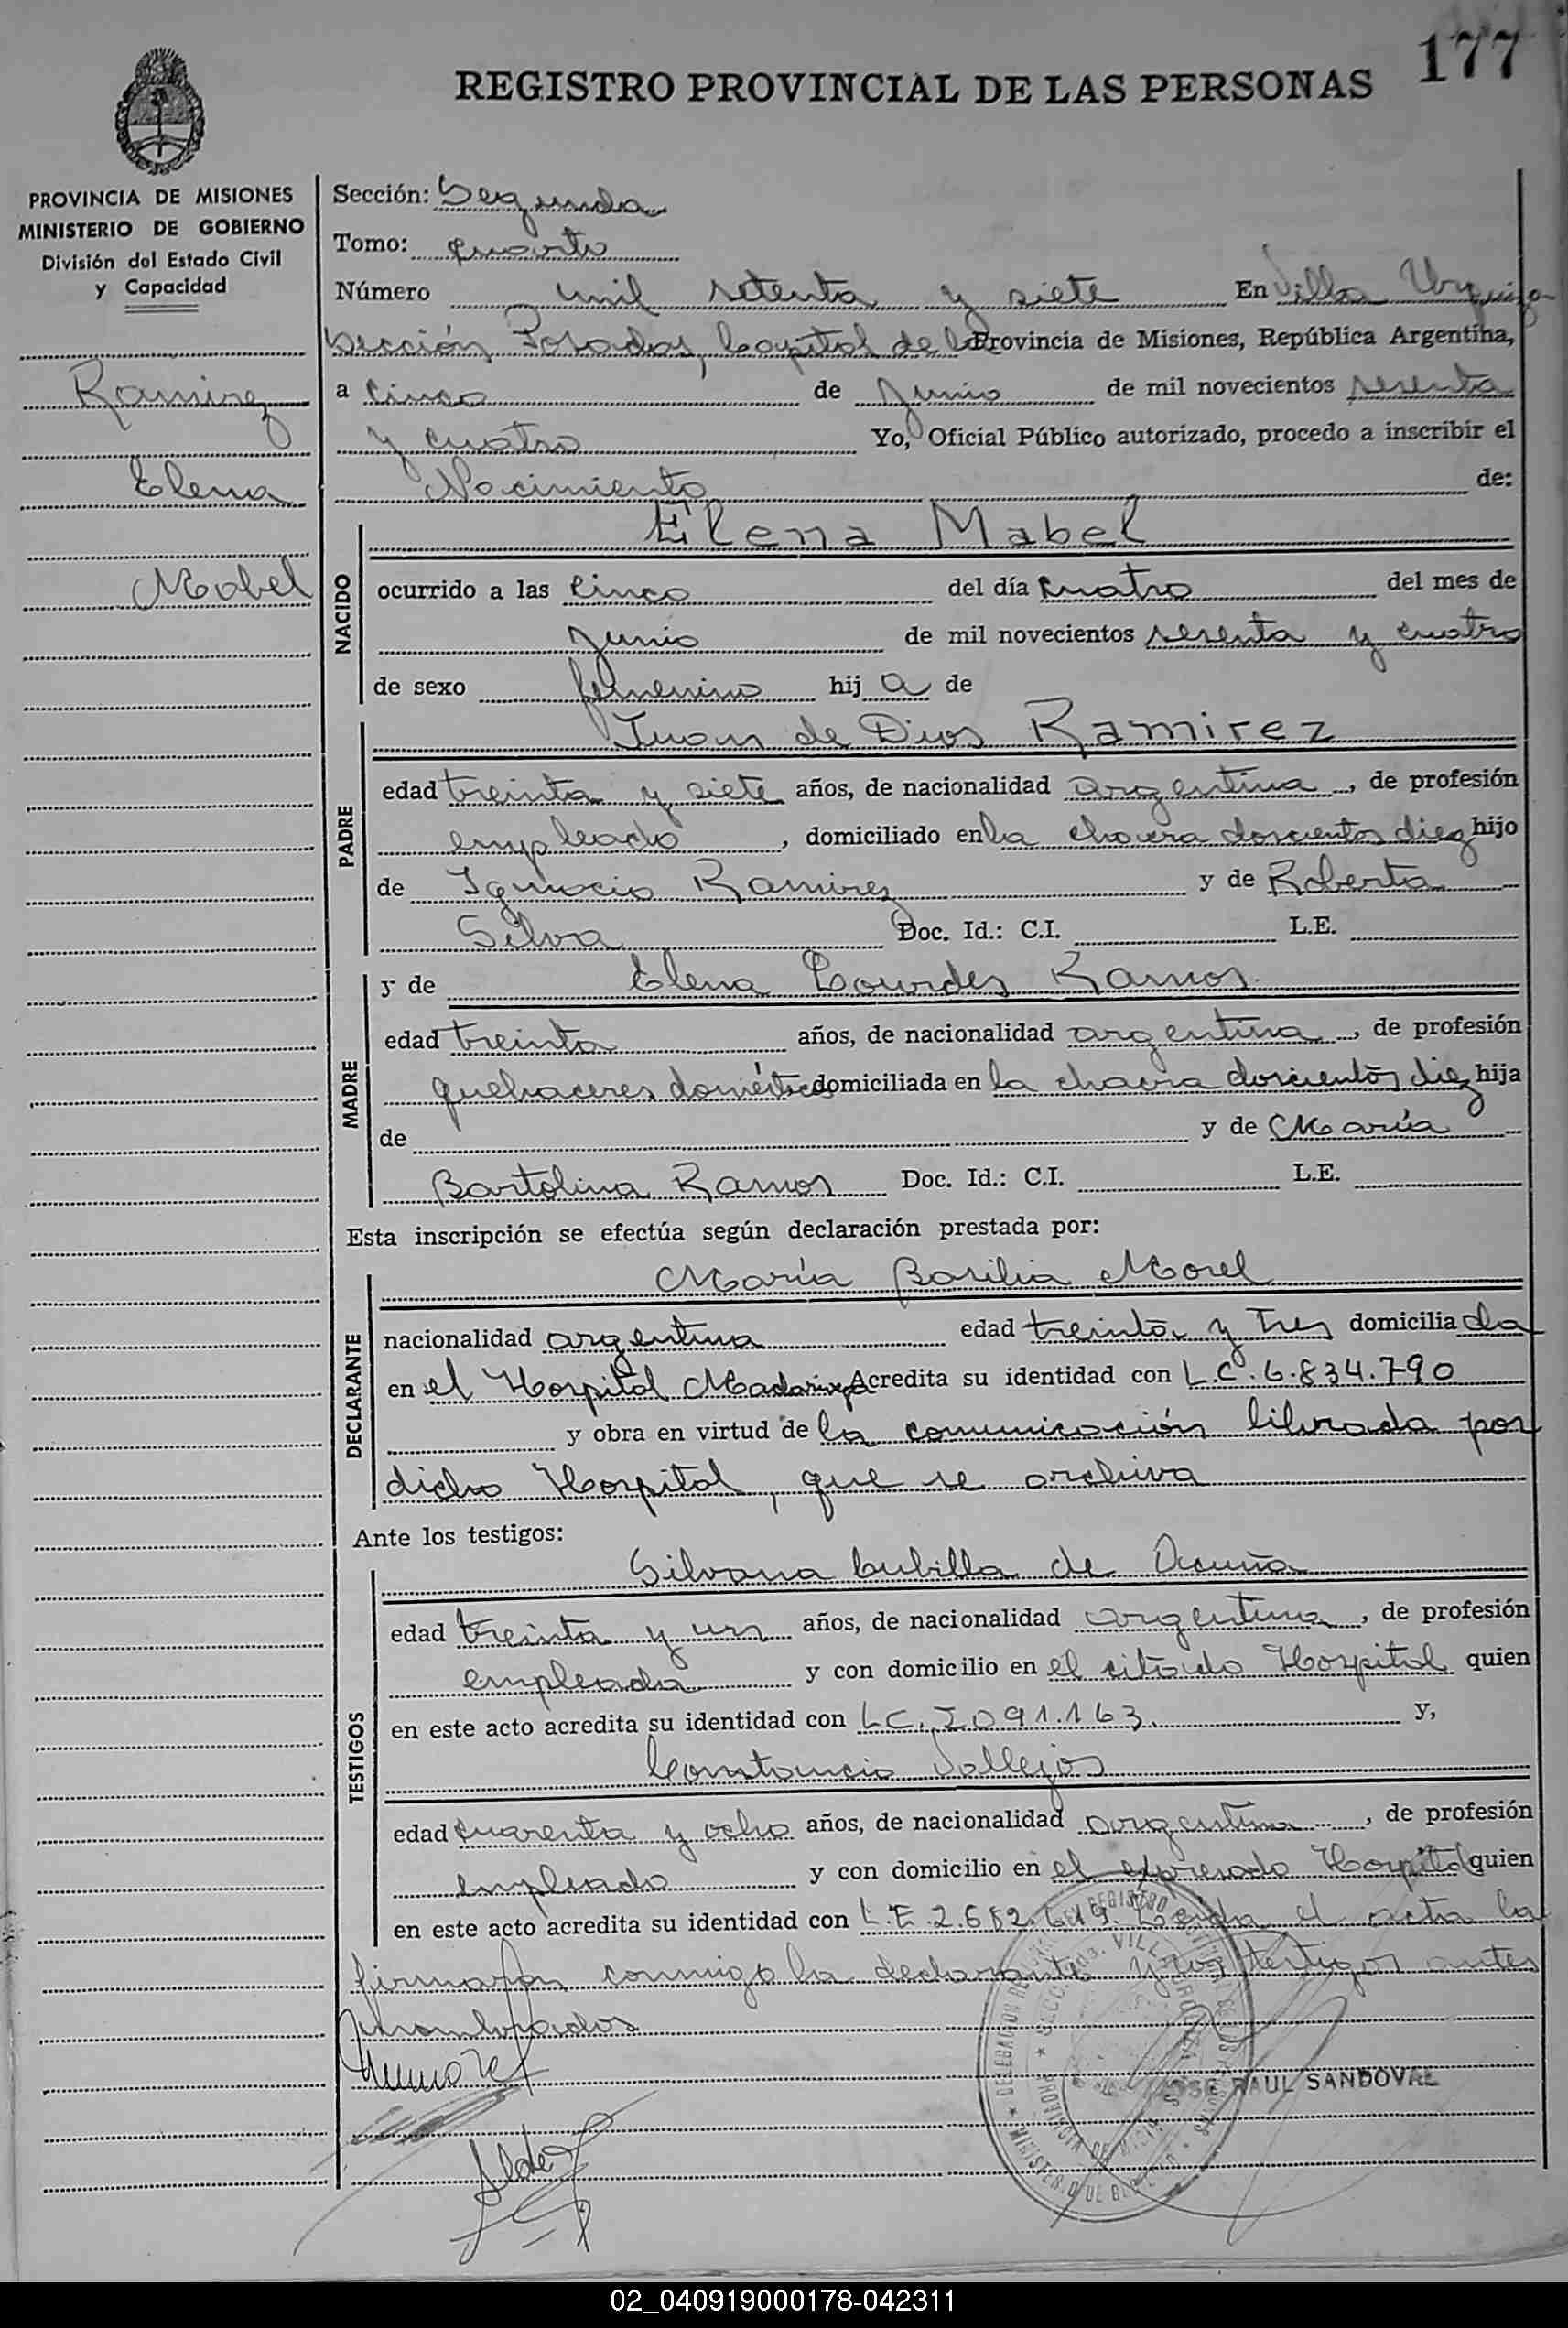 177
REGISTRO PROVINCIAL DE LAS PERSONAS
PROVINCIA DE MISIONES
MINISTERIO DE GOBIERNO
División del Estado Civil
y Capacidad
Ramirez
Elena
Mabel
Sección: Segunda
Tomo: cuarto
Número mil setenta y siete En Villa Urquiza
Sección Posadas, Capital de la Provincia de Misiones, República Argentina,
a cinco de Junio de mil novecientos sesenta
y cuatro Yo, Oficial Público autorizado, procedo a inscribir el
Nacimiento de:
NACIDO
Elena Mabel
ocurrido a las cinco del día cuatro del mes de
Junio de mil novecientos sesenta y cuatro
de sexo femenino hij a de
PADRE
Juan de Dios Ramirez
edad treinta y siete años, de nacionalidad argentina, de profesión
empleado, domiciliado en la chacra doscientos diez hijo
de Ignacio Ramirez y de Roberta
Silva Doc. Id.: C.I. L.E.
MADRE
y de Elena Lourdes Ramos
edad treinta años, de nacionalidad argentina, de profesión
quehaceres domésticos domiciliada en la chacra doscientos diez hija
de y de María
Bartolina Ramos Doc. Id.: C.I. L.E.
Esta inscripción se efectúa según declaración prestada por:
DECLARANTE
María Basilia Morel
nacionalidad argentina edad treinta y tres domicilia da
en el Hospital Madariaga Acredita su identidad con L.C. 6.834.790
y obra en virtud de la comunicación librada por
dicho Hospital, que se archiva
Ante los testigos:
TESTIGOS
Silvana Cubilla de Acuña
edad treinta y un años, de nacionalidad argentina, de profesión
empleada y con domicilio en el citado Hospital quien
en este acto acredita su identidad con LC. 2091.163. y,
Constancio Vallejos
edad cuarenta y ocho años, de nacionalidad argentina, de profesión
empleado y con domicilio en el expresado Hospital quien
en este acto acredita su identidad con L.E. Leída el acta la
firmaron conmigo la declarante y los testigos antes
nombrados
JOSE RAUL SANDOVAL
02_040919000178-042311